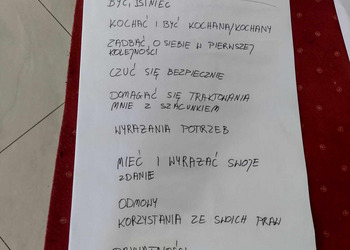 BYĆ, ISTNIEĆ
KOCHAĆ I BYĆ KOCHANĄ/KOCHANY
ZADBAĆ O SIEBIE W PIERWSZEJ
KOLEJNOŚCI
CZUĆ SIĘ BEZPIECZNIE
DOMAGAĆ SIĘ TRAKTOWANIA
MNIE Z SZACUNKIEM
WYRAŻANIA POTRZEB
MIEĆ I WYRAŻAĆ SWOJE
ZDANIE
ODMOWY
KORZYSTANIA ZE SWOICH PRAW